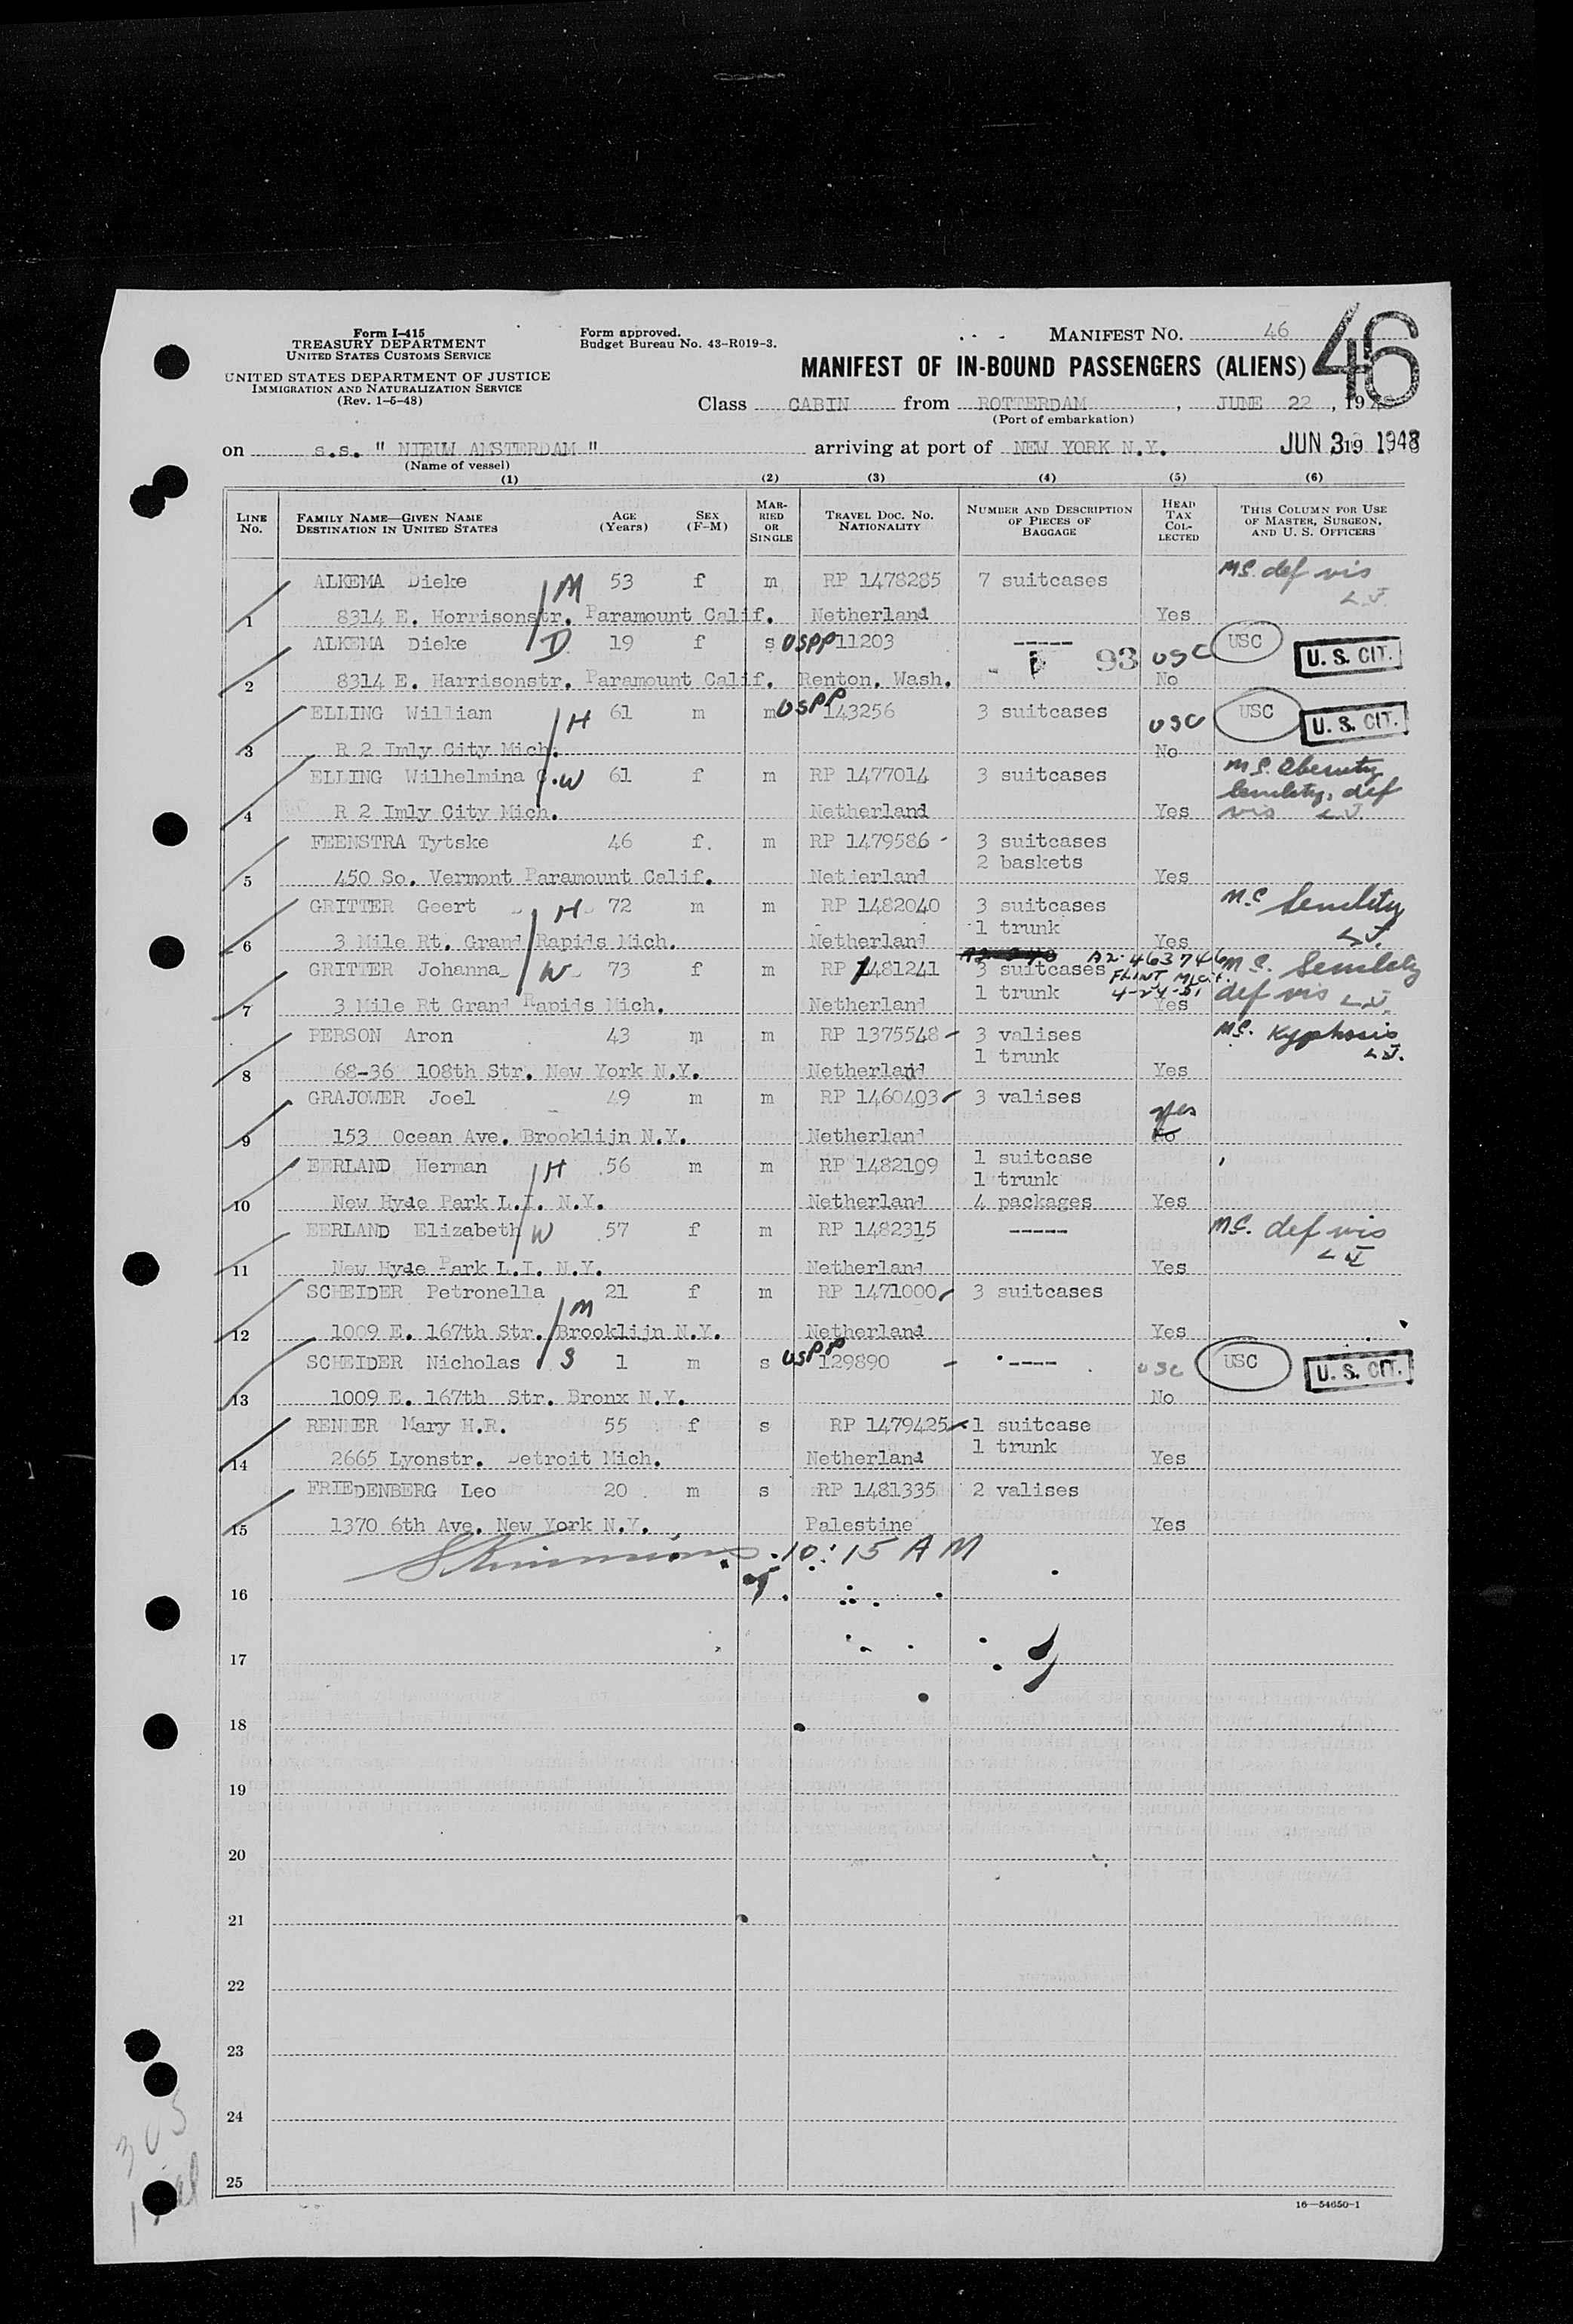 Form I-415
TREASURY DEPARTMENT
UNITED STATES CUSTOMS SERVICE
UNITED STATES DEPARTMENT OF JUSTICE
IMMIGRATION AND NATURALIZATION SERVICE
(Rev. 1-6-48)
Form approved.
Budget Bureau No. 43-R019-3.
MANIFEST NO. 46
46
MANIFEST OF IN-BOUND PASSENGERS (ALIENS)
Class CABIN from ROTTERDAM, JUNE 22, 19
(Port of embarkation)
on s.s. " NIEUW AMSTERDAM " arriving at port of NEW YORK N.Y. JUN 3 19 1948
(Name of vessel)
(1) (2) (3) (4) (5) (6)
LINE No. FAMILY NAME—GIVEN NAME DESTINATION IN UNITED STATES AGE (Years) SEX (F-M) MARRIED OR SINGLE TRAVEL DOC. NO. NATIONALITY NUMBER AND DESCRIPTION OF PIECES OF BAGGAGE HEAD TAX COLLECTED THIS COLUMN FOR USE OF MASTER, SURGEON, AND U. S. OFFICERS
ALKEMA Dieke M 53 f m RP 1478285 7 suitcases MS. def vis L.J.
1 8314 E. Horrisonstr. Paramount Calif. Netherland Yes
ALKEMA Dieke D 19 f s USPP 11203 ---- 93 USC USC U. S. CIT.
2 8314 E. Harrisonstr. Paramount Calif. Renton. Wash. No
ELLING William H 61 m m USPP 143256 3 suitcases USC USC U. S. CIT.
3 R 2 Imly City Mich. No
ELLING Wilhelmina G. W 61 f m RP 1477014 3 suitcases MS. def
4 R 2 Imly City Mich. Netherland Yes vis L.J.
FEENSTRA Tytske 46 f. m RP 1479586 - 3 suitcases
2 baskets
5 450 So. Vermont Paramount Calif. Netierland Yes
GRITTER Geert H 72 m m RP 1482040 3 suitcases M.S
1 trunk L.J.
6 3 Mile Rt. Grand Rapids Mich. Netherland Yes
A2-463746
GRITTER Johanna W 73 f m RP 1481241 3 suitcases FLINT Mich. MS.
1 trunk 4-24-51 def vis L.J.
7 3 Mile Rt Grand Rapids Mich. Netherland Yes
PERSON Aron 43 m m RP 1375548 - 3 valises MS. Kyphosis
1 trunk L.J.
8 68-36 108th Str. New York N.Y. Netherland Yes
GRAJOWER Joel 49 m m RP 1460493 3 valises yes
9 153 Ocean Ave. Brooklijn N.Y. Netherland No
EERLAND Herman H 56 m m RP 1482109 1 suitcase
1 trunk
10 New Hyde Park L.I. N.Y. Netherland 4 packages Yes
EERLAND Elizabeth W 57 f m RP 1482315 ----- MS. def vis L.J.
11 New Hyde Park L.I. N.Y. Netherland Yes
SCHEIDER Petronella M 21 f m RP 1471000 3 suitcases
12 1009 E. 167th Str. Brooklijn N.Y. Netherland Yes
SCHEIDER Nicholas S 1 m s USPP 129890 - ---- USC USC U. S. CIT.
13 1009 E. 167th Str. Bronx N.Y. No
Mary H.R. 55 f s RP 1479425 1 suitcase
1 trunk
14 2665 Lyonstr. Detroit Mich. Netherland Yes
FRIEDENBERG Leo 20 m s RP 1481335 2 valises
15 1370 6th Ave. New York N.Y. Palestine Yes
10:15 AM
16
17
18
19
20
21
22
23
24
25
305
16—54650-1